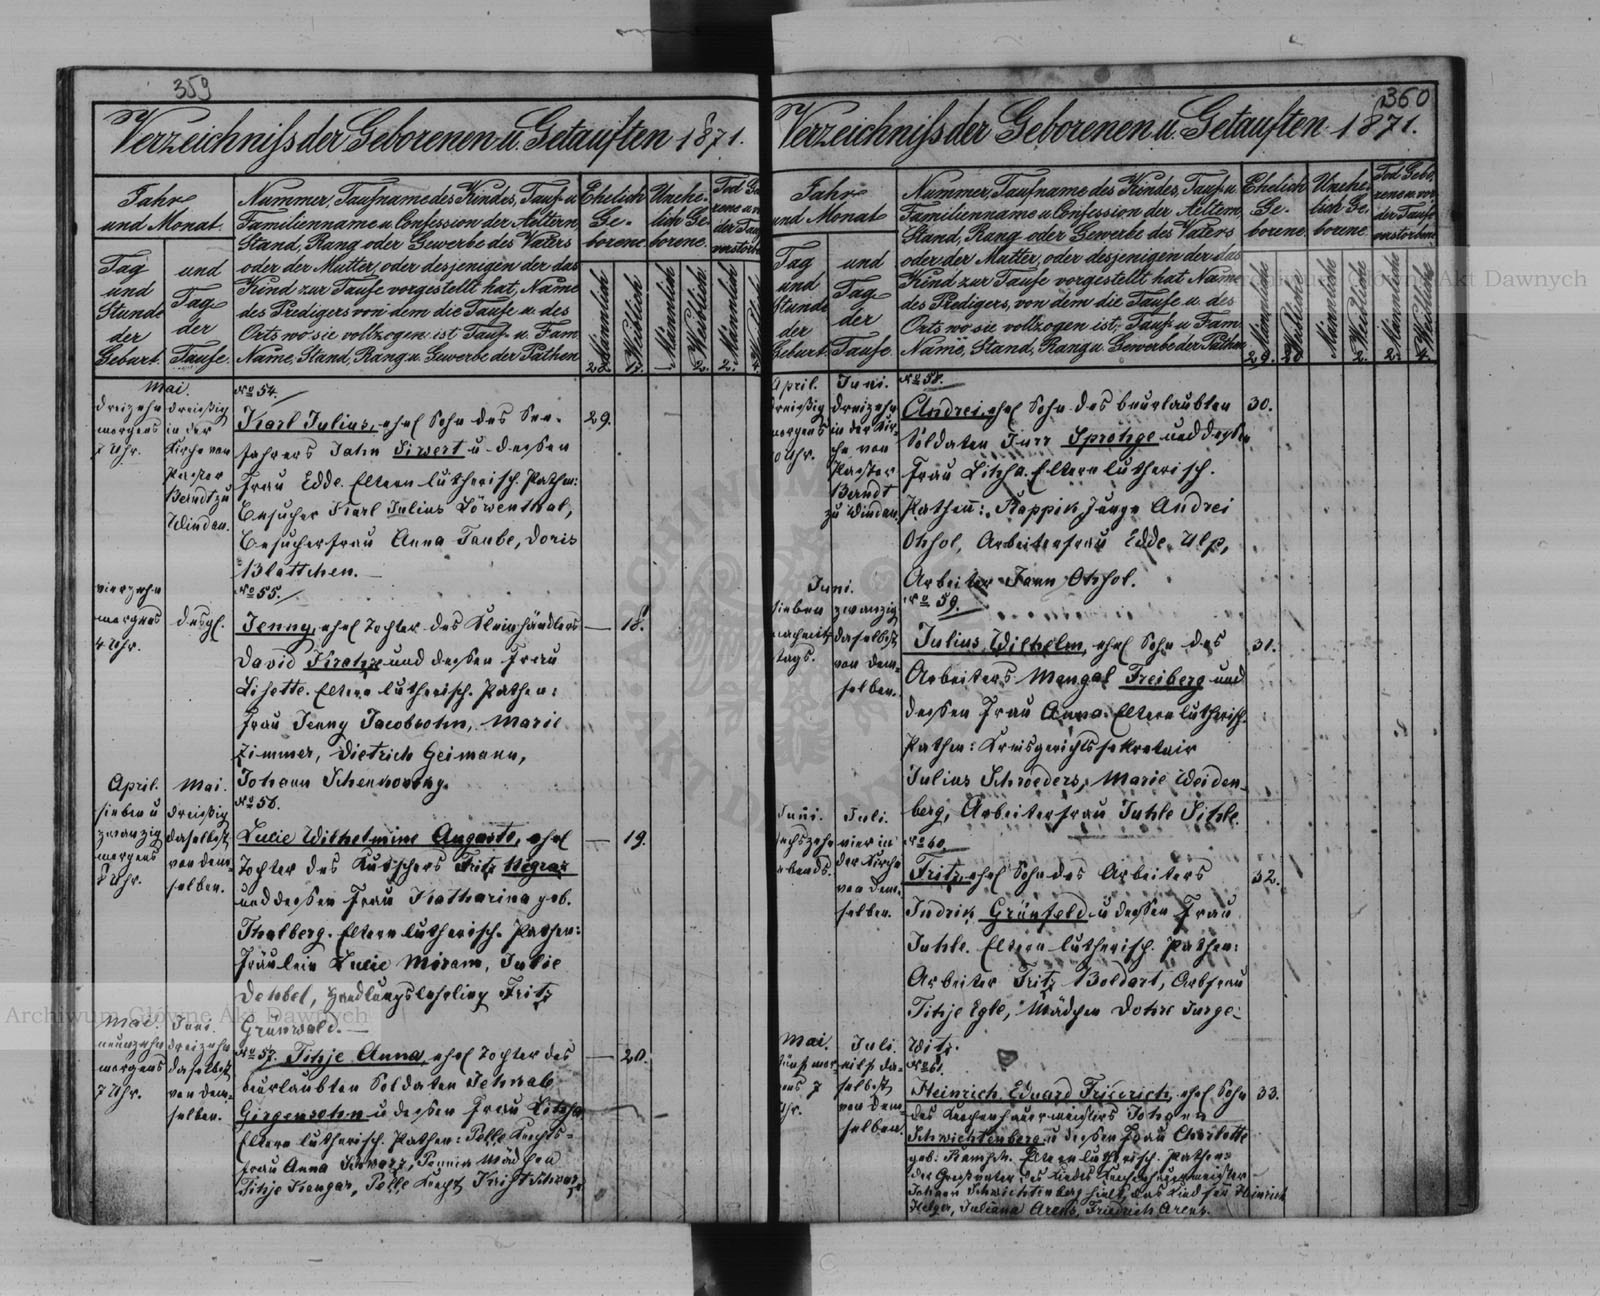 359
Verzeichniss der Geborenen u. Getauften 1871.
Jahr
und Monat.
Tag
und
Stunde
der
Geburt.
und
Tag
der
Taufe.
Nummer, Taufname des Kindes, Tauf- u.
Familienname u. Confession der Aeltern,
Stand, Rang oder Gewerbe des Vaters
oder der Mutter, oder desjenigen der das
Kind zur Taufe vorgestellt hat, Name
des Predigers von dem die Taufe u. des
Orts wo sie vollzogen ist Tauf- u. Fam.
Name, Stand, Rang u. Gewerbe der Pathen
Ehelich
Ge-
borene
Unehe-
lich Ge-
borene.
Männlich
Weiblich
Männlich
Weiblich
Männlich
28.
17.
2.
2.
Mai.
dreizehn
morgens
7 Uhr.
dreißig
in der
Kirche von
Pastor
Berndt zu
Windau.
No 54.
Karl Julius, ehel Sohn des See-
fahrers Jahn Siwert u. dessen
Frau Edde. Eltern lutherisch. Pathen:
Besucher Karl Julius Löwenthal,
Besucherfrau Anna Taube, Doris
Blättchen.
29.
vierzehn
morgens
4 Uhr.
desgl.
No 55.
Jenny, ehel Tochter des Kleinhändlers
David und dessen Frau
Lisette. Eltern lutherisch. Pathen:
Frau Jenny Jacobsohn, Marie
Zimmer, Dietrich Geimann,
Johann
18.
April.
sieben u
zwanzig
morgens
8 Uhr.
Mai.
dreißig
daselbst
von dem-
selben.
No 56.
Lucie Wilhelmine Auguste, ehel
Tochter des Kutschers Fritz
und dessen Frau Katharina geb.
Thalberg. Eltern lutherisch. Pathen:
Fräulein Lucie Julie
Handlungslehrling Fritz
Grünwald.
19.
Mai.
neunzehn
morgens
7 Uhr.
Juni.
dreizehn
daselbst
von dem-
selben.
No 57. Tihje Anna, ehel Tochter des
beurlaubten Soldaten Jehkab
Girgensohn u dessen Frau
Eltern lutherisch. Pathen: Knechts-
frau Anna Schwarz, Mädchen
Tihje Kengar, Knecht Krist Schwarz
20.
360
Verzeichniss der Geborenen u. Getauften 1871.
Jahr
und Monat
Tag
und
Stunde
der
Geburt.
und
Tag
der
Taufe.
Nummer, Taufname des Kindes, Tauf- u.
Familienname u. Confession der Aeltern,
Stand, Rang oder Gewerbe des Vaters
oder der Mutter, oder desjenigen der das
Kind zur Taufe vorgestellt hat, Name
des Predigers, von dem die Taufe u. des
Orts wo sie vollzogen ist, Tauf- u. Fam.
Name, Stand, Rang u. Gewerbe der Pathen
Ehelich
Ge-
borene.
Unehe-
lich Ge-
borene.
Tod Gebo-
rene u. vor
der Taufe
verstorbene
Männliche
Weibliche
Männliche
Weibliche
Männliche
Weibliche
29.
20
2.
2.
4.
April.
dreißig
morgens
Uhr.
Juni.
dreizehn
in der Kir-
che von
Pastor
Berndt
zu Windau.
No 58.
Andrei, ehel Sohn des beurlaubten
Soldaten Jurr Sprohge und dessen
Frau Lihze. Eltern lutherisch.
Pathen: Junge Andrei
Ohsol, Arbeiterfrau Edde Ulp,
Arbeiter Jann Ohsol.
30.
Juni.
sieben
nachmit-
tags.
zwanzig
daselbst
von dem-
selben.
No 59.
Julius Wilhelm, ehel Sohn des
Arbeiters Mangal Freiberg und
dessen Frau Anna. Eltern lutherisch.
Pathen: Kreisgerichtssekretair
Julius Schroeders, Marie Weiden-
berg, Arbeiterfrau Juhle Sihle.
31.
Juni.
sechszehn
abends.
Juli.
vier in
der Kirche
von dem-
selben.
No 60.
Fritz, ehel Sohn des Arbeiters
Indrik Grünfeld u dessen Frau
Juhle. Eltern lutherisch. Pathen:
Arbeiter Fritz Boldart, Arbfrau
Tihje Egle, Mädchen Dohre Jurge-
witz.
32.
Mai.
fünf mor-
gens 7
Uhr.
Juli.
eilf da-
selbst
von dem-
selben.
No 61.
Heinrich Eduard Friedrich, ehel Sohn
des Knochenhauermeisters Johann
Schwichtenberg u dessen Frau Charlotte
geb. Eltern lutherisch. Pathen:
der Großvater des Kindes Knochenhauermeister
Johann Schwichtenberg hielt das Kind für Heinrich
Helger, Juliana Arens, Friedrich Arens.
33.
Archiwum Główne Akt Dawnych
Archiwum Główne Akt Dawnych
ARCHIWUM
AKT DAWNYCH